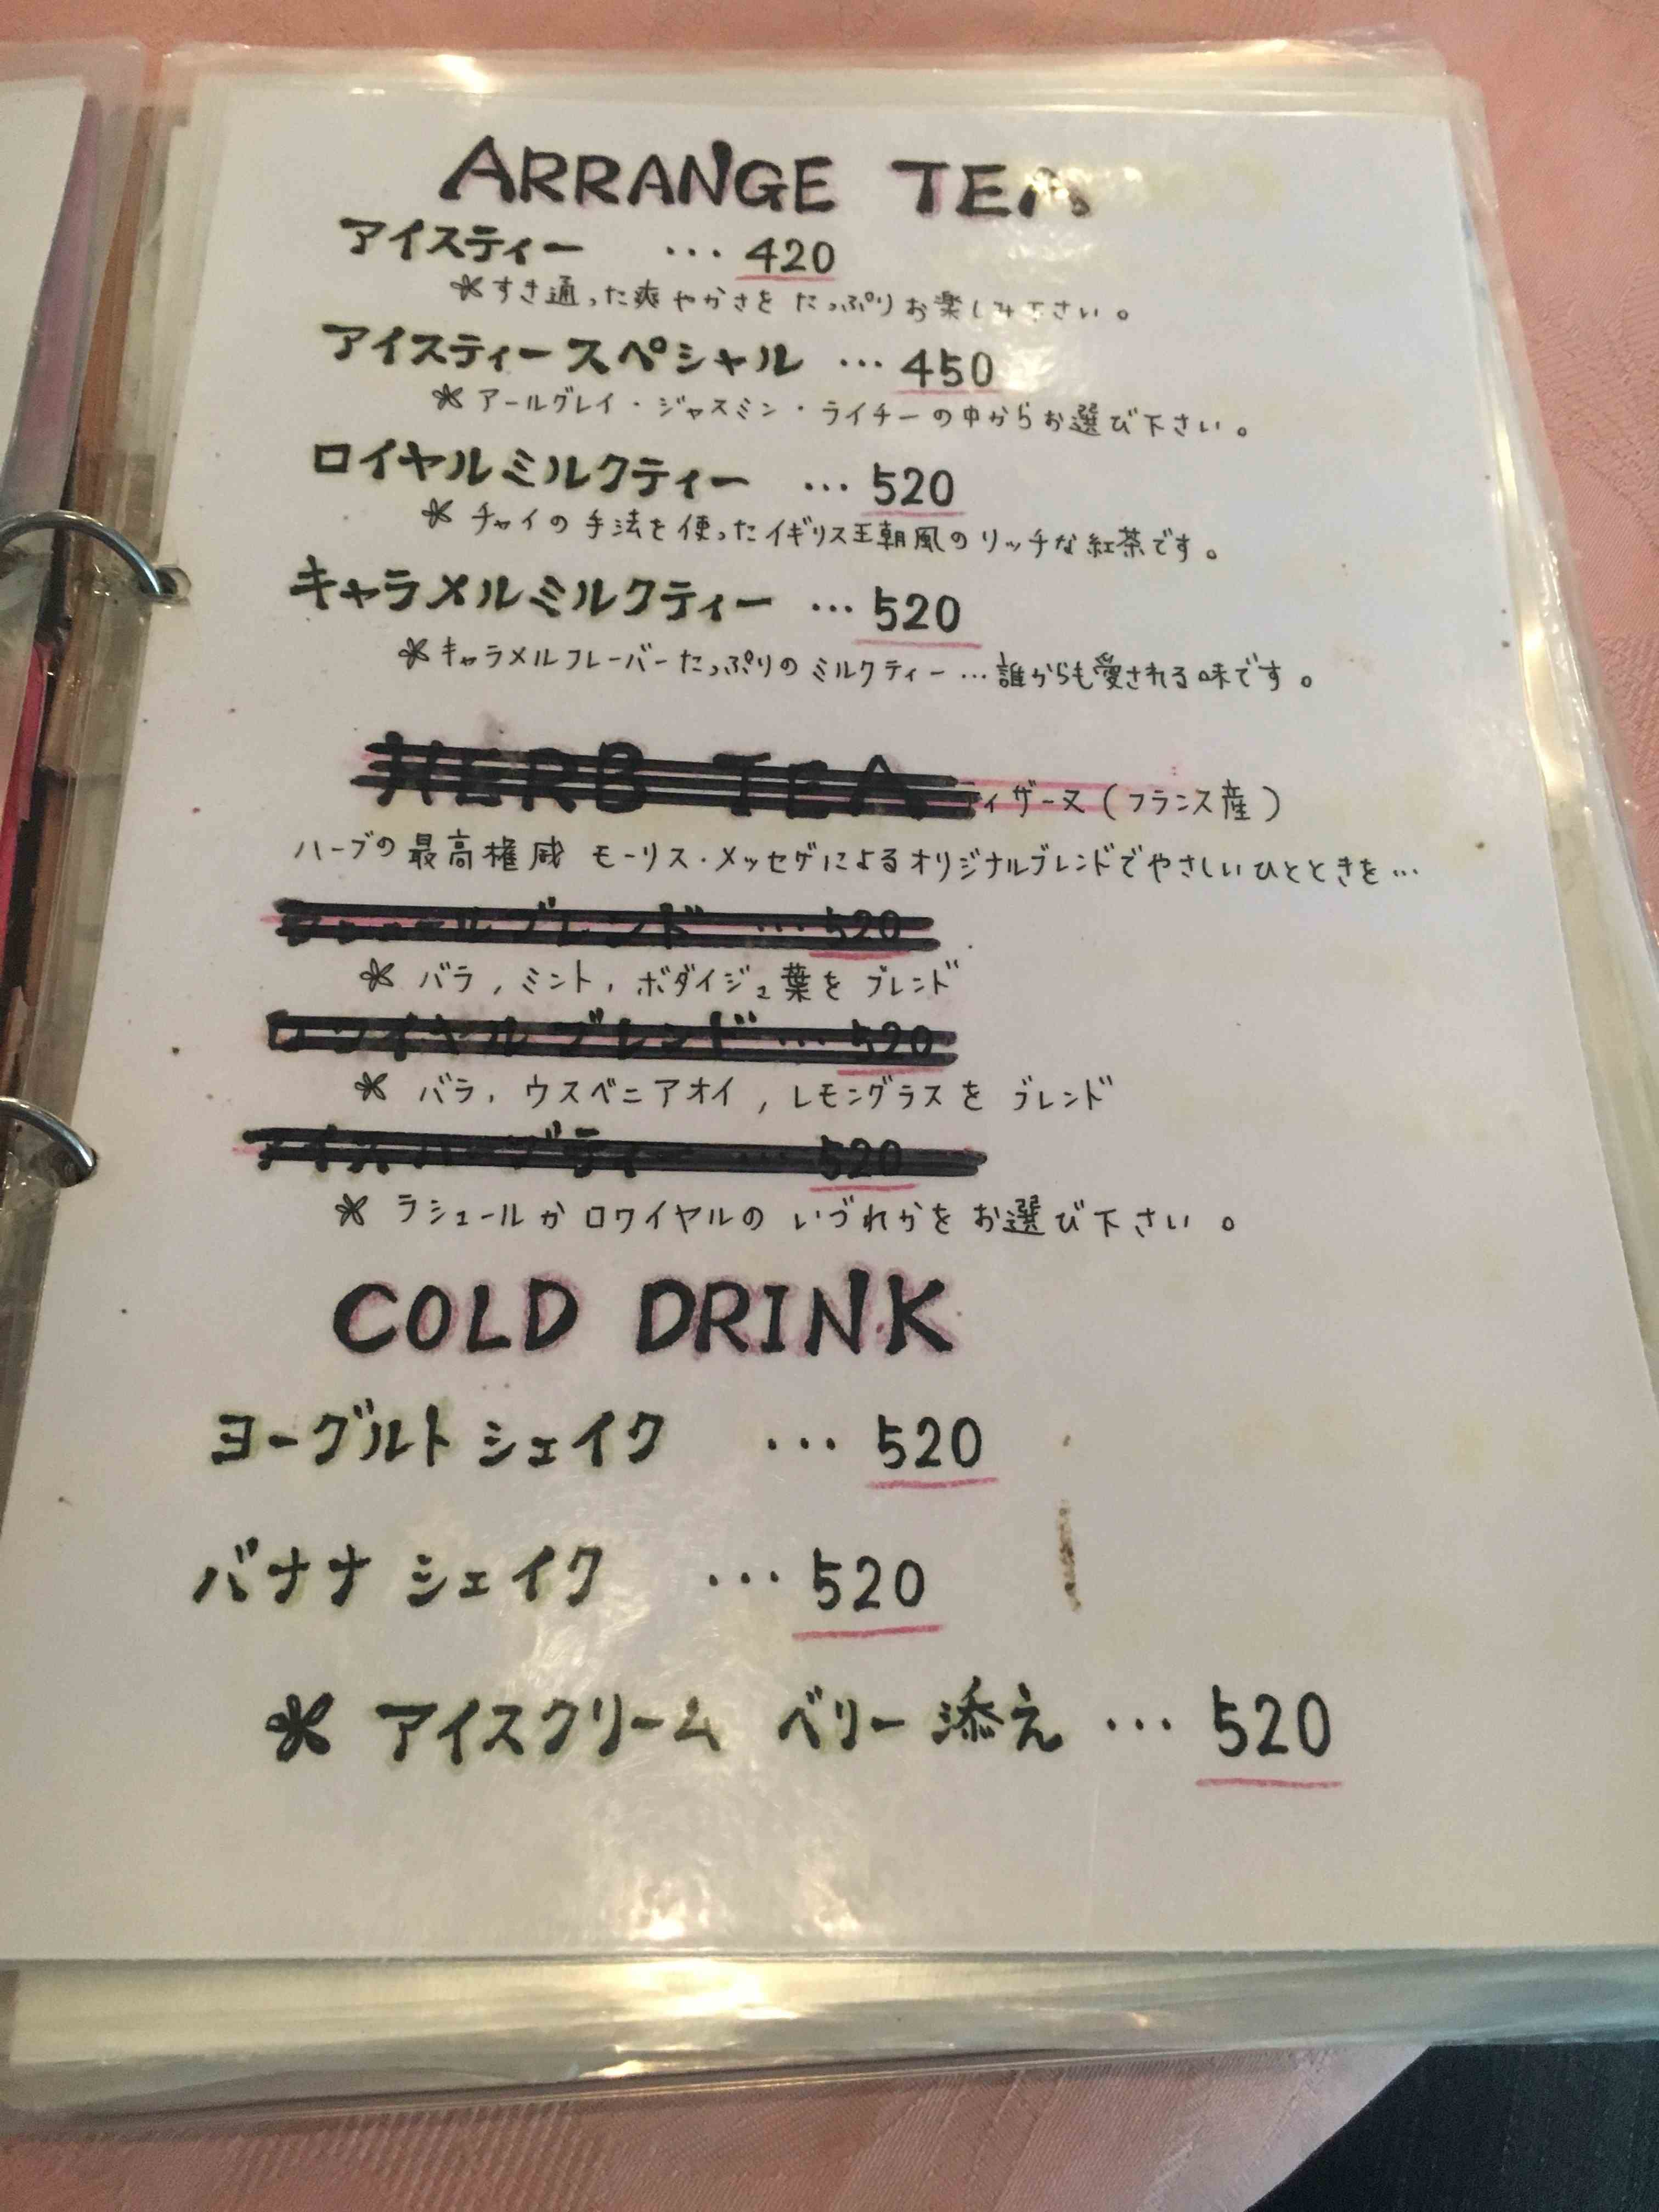 ARRANGE TEA
アイスティー … 420
*すき通った爽やかさを たっぷりお楽しみ下さい。
アイスティースペシャル … 450
* アールグレイ・ジャスミン・ライチーの中からお選び下さい。
ロイヤルミルクティー … 520
* チャイの手法を使ったイギリス王朝風のリッチな紅茶です。
キャラメルミルクティー … 520
*キャラメルフレーバーたっぷりのミルクティー…誰からも愛される味です。
HERB TEA ティザーヌ(フランス産)
ハーブの最高権威 モーリス・メッセゲによるオリジナルブレンドでやさしいひとときを…
ブレンド … 520
* バラ,ミント,ボダイジュ葉を ブレンド
ロワイヤルブレンド … 520
* バラ,ウスベニアオイ,レモングラスを ブレンド
アイスハーブティー … 520
* ラシュールかロワイヤルの いづれかを お選び下さい。
COLD DRINK
ヨーグルト シェイク … 520
バナナ シェイク … 520
* アイスクリーム ベリー添え … 520